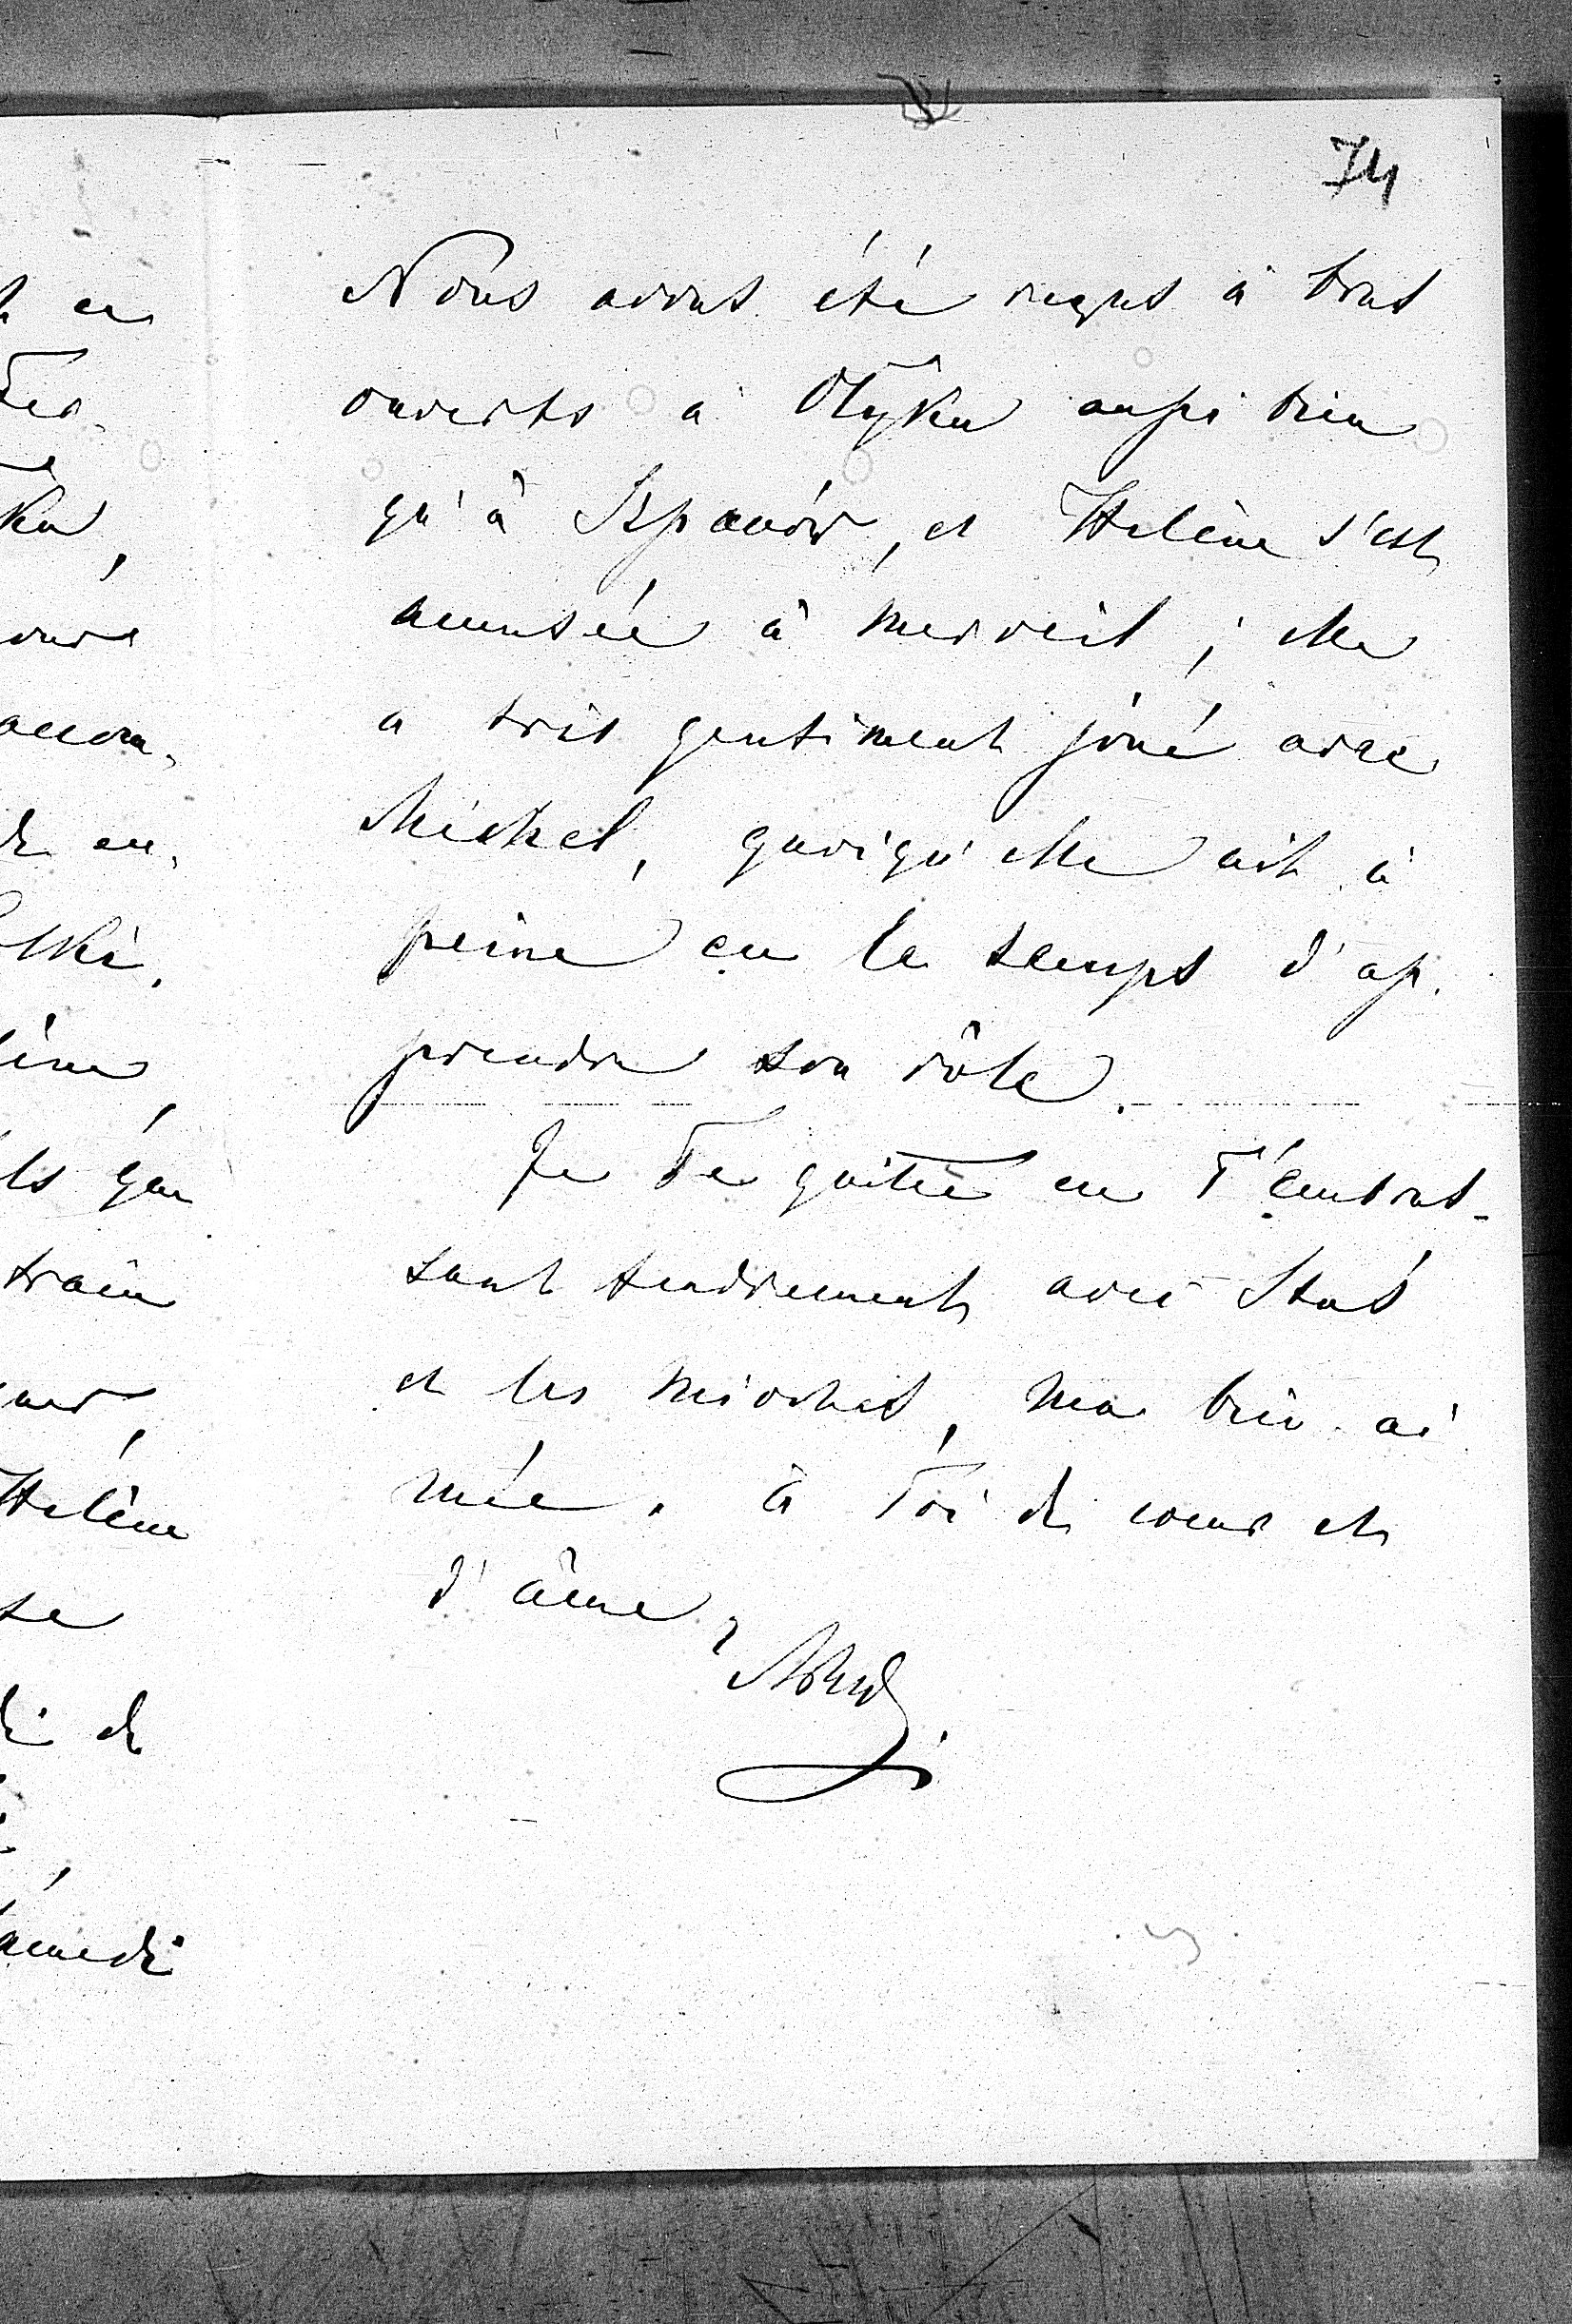 74
Nous avons été reçus à bras
ouverts à Olyka aussi bien
qu'à Szpanów, et Hélène s'est
amusée à merveil ; elle
a très gentiment joué avec
Michel, quoiqu'elle ait à
peine eu le temps d'ap.
prendre son rôle.
Je Te quitte en T'embras-
sant tendrement avec Staś
et les mioches, ma bien ai
mée. à Toi de coeur et
d'âme,